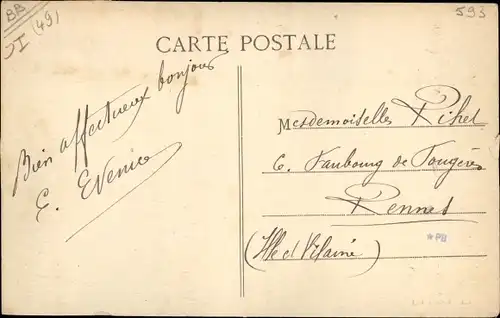 BB
(49)
593
CARTE POSTALE
Bien affectueux bonjour
Mesdemoiselles
6. Faubourg de Fougères
Rennes
(Ille et Vilaine)
*PB